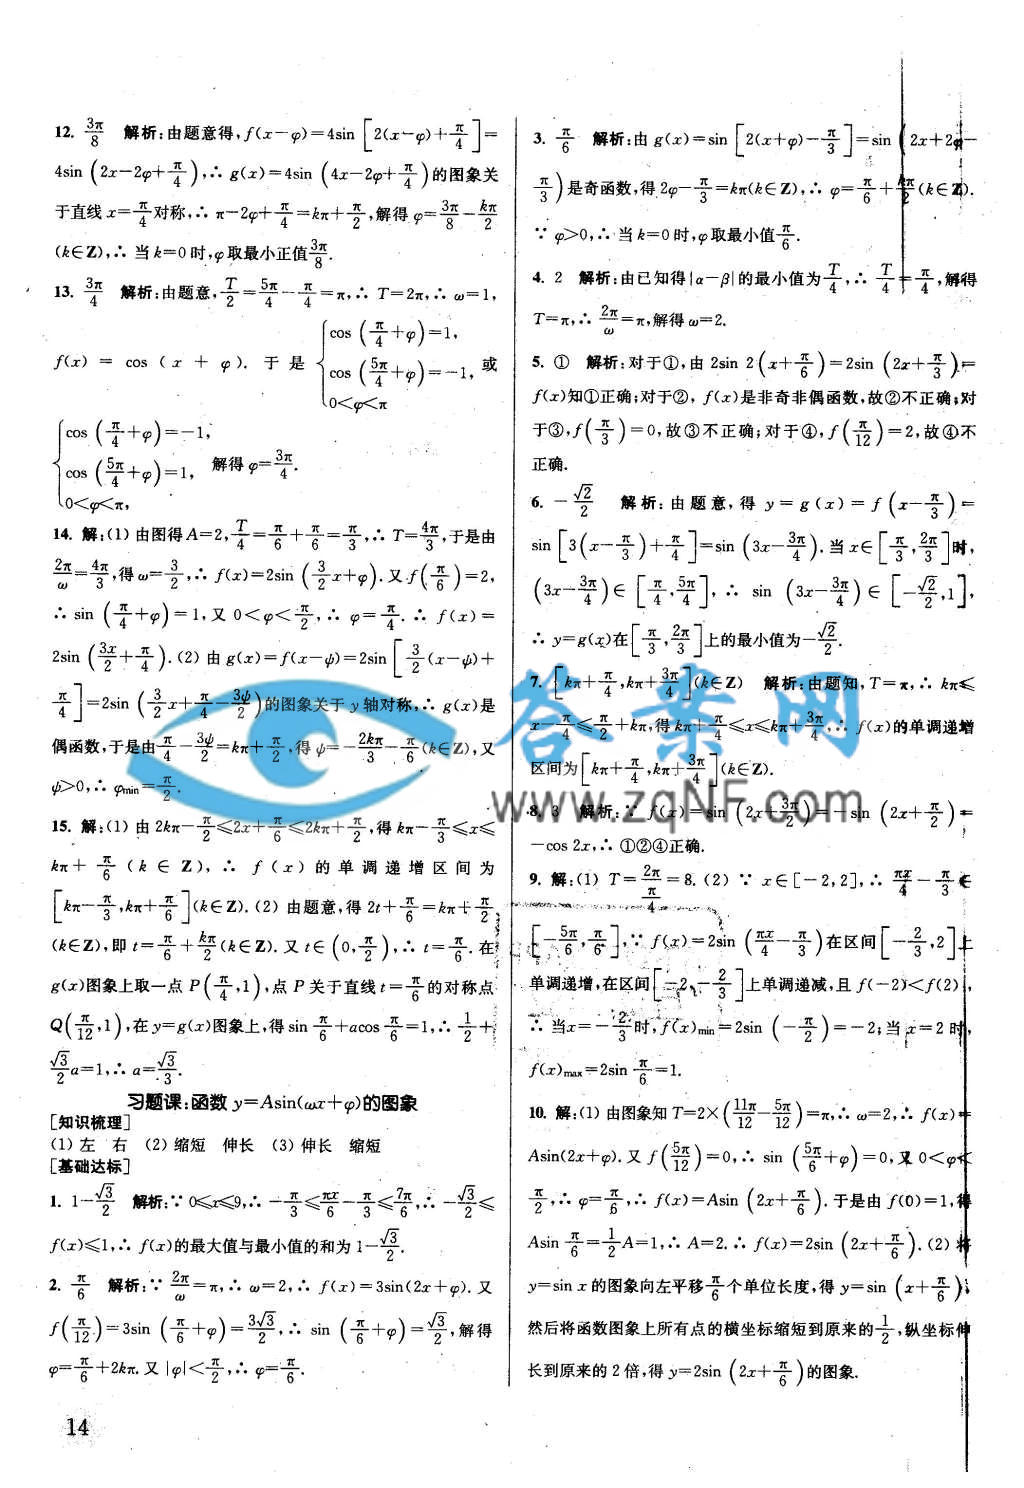 12. 3π/8 解析:由题意得,f(x-φ)=4sin[2(x-φ)+π/4]=
4sin(2x-2φ+π/4),∴g(x)=4sin(4x-2φ+π/4)的图象关
于直线x=π/4对称,∴π-2φ+π/4=kπ+π/2,解得φ=3π/8-kπ/2
(k∈Z),∴当k=0时,φ取最小正值3π/8.
13. 3π/4 解析:由题意,T/2=5π/4-π/4=π,∴T=2π,∴ω=1,
f(x)=cos(x+φ).于是{cos(π/4+φ)=1, cos(5π/4+φ)=-1, 0<φ<π 或
{cos(π/4+φ)=-1, cos(5π/4+φ)=1, 0<φ<π, 解得φ=3π/4.
14. 解:(1)由图得A=2,T/4=π/6+π/6=π/3,∴T=4π/3,于是由
2π/ω=4π/3,得ω=3/2,∴f(x)=2sin(3/2x+φ).又f(π/6)=2,
∴sin(π/4+φ)=1,又0<φ<π/2,∴φ=π/4.∴f(x)=
2sin(3x/2+π/4).(2)由g(x)=f(x-ψ)=2sin[3/2(x-ψ)+
π/4]=2sin(3/2x+π/4-3ψ/2)的图象关于y轴对称,∴g(x)是
偶函数,于是由π/4-3ψ/2=kπ+π/2,得ψ=-2kπ/3-π/6(k∈Z),又
ψ>0,∴φmin=π/2.
15. 解:(1)由2kπ-π/2≤2x+π/6≤2kπ+π/2,得kπ-π/3≤x≤
kπ+π/6(k∈Z),∴f(x)的单调递增区间为
[kπ-π/3,kπ+π/6](k∈Z).(2)由题意,得2t+π/6=kπ+π/2
(k∈Z),即t=π/6+kπ/2(k∈Z).又t∈(0,π/2),∴t=π/6.在
g(x)图象上取一点P(π/4,1),点P关于直线t=π/6的对称点
Q(π/12,1),在y=g(x)图象上,得sinπ/6+acosπ/6=1,∴1/2+
√3/2a=1,∴a=√3/3.
习题课:函数y=Asin(ωx+φ)的图象
[知识梳理]
(1)左 右 (2)缩短 伸长 (3)伸长 缩短
[基础达标]
1. 1-√3/2 解析:∵0≤x≤9,∴-π/3≤πx/6-π/3≤7π/6,∴-√3/2≤
f(x)≤1,∴f(x)的最大值与最小值的和为1-√3/2.
2. π/6 解析:∵2π/ω=π,∴ω=2,∴f(x)=3sin(2x+φ).又
f(π/12)=3sin(π/6+φ)=3√3/2,∴sin(π/6+φ)=√3/2,解得
φ=π/6+2kπ.又|φ|<π/2,∴φ=π/6.
14
3. π/6 解析:由g(x)=sin[2(x+φ)-π/3]=sin(2x+2φ-
π/3)是奇函数,得2φ-π/3=kπ(k∈Z),∴φ=π/6+kπ/2(k∈Z).
∵φ>0,∴当k=0时,φ取最小值π/6.
4. 2 解析:由已知得|α-β|的最小值为T/4,∴T/4=π/4,解得
T=π,∴2π/ω=π,解得ω=2.
5. ① 解析:对于①,由2sin2(x+π/6)=2sin(2x+π/3)=
f(x)知①正确;对于②,f(x)是非奇非偶函数,故②不正确;对
于③,f(π/3)=0,故③不正确;对于④,f(π/12)=2,故④不
正确.
6. -√2/2 解析:由题意,得y=g(x)=f(x-π/3)=
sin[3(x-π/3)+π/4]=sin(3x-3π/4).当x∈[π/3,2π/3]时,
(3x-3π/4)∈[π/4,5π/4],∴sin(3x-3π/4)∈[-√2/2,1],
∴y=g(x)在[π/3,2π/3]上的最小值为-√2/2.
7. [kπ+π/4,kπ+3π/4](k∈Z) 解析:由题知,T=π,∴kπ≤
x-π/4≤π/2+kπ,得kπ+π/4≤x≤kπ+3π/4,∴f(x)的单调递增
区间为[kπ+π/4,kπ+3π/4](k∈Z).
8. 3 解析:∵f(x)=sin(2x+3π/2)=-sin(2x+π/2)=
-cos 2x,∴①②④正确.
9. 解:(1)T=2π/(π/4)=8.(2)∵x∈[-2,2],∴πx/4-π/3∈
[-5π/6,π/6],∵f(x)=2sin(πx/4-π/3)在区间[-2/3,2]上
单调递增,在区间[-2,-2/3]上单调递减,且f(-2)<f(2),
∴当x=-2/3时,f(x)min=2sin(-π/2)=-2;当x=2时,
f(x)max=2sinπ/6=1.
10. 解:(1)由图象知T=2×(11π/12-5π/12)=π,∴ω=2,∴f(x)=
Asin(2x+φ).又f(5π/12)=0,∴sin(5π/6+φ)=0,又0<φ<
π/2,∴φ=π/6,∴f(x)=Asin(2x+π/6).于是由f(0)=1,得
Asinπ/6=1/2A=1,∴A=2.∴f(x)=2sin(2x+π/6).(2)将
y=sin x的图象向左平移π/6个单位长度,得y=sin(x+π/6),
然后将函数图象上所有点的横坐标缩短到原来的1/2,纵坐标伸
长到原来的2倍,得y=2sin(2x+π/6)的图象.
答案网
www.zqNF.com